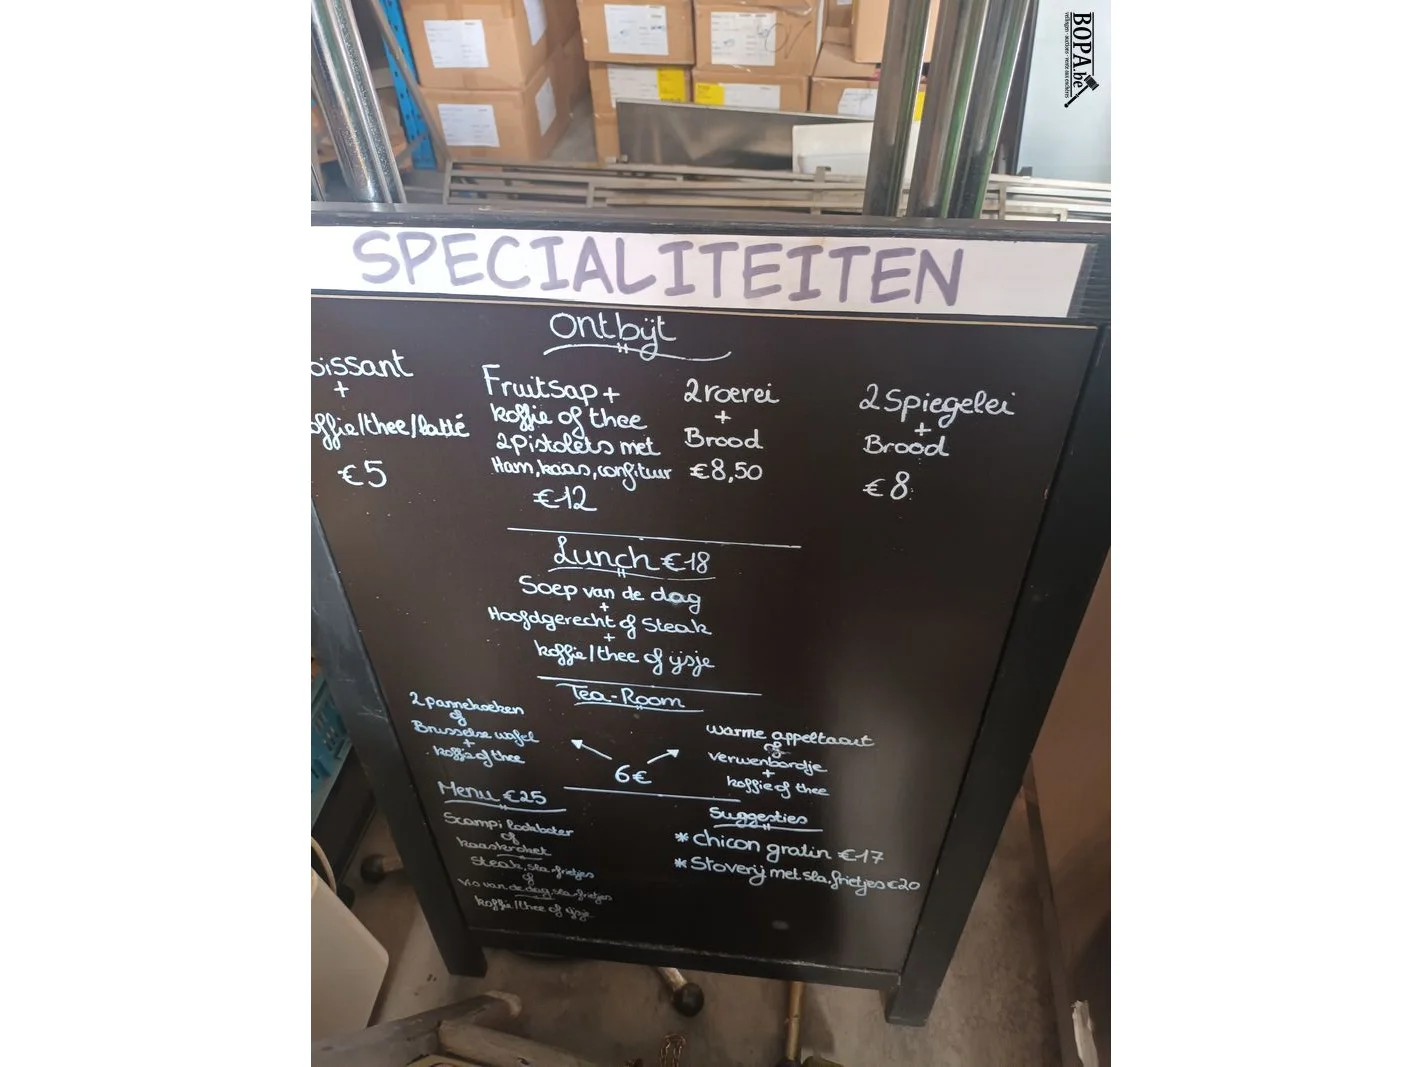 BOPA.be
SPECIALITEITEN
Ontbijt
oissant
+
offie/thee/latté
€5
Fruitsap +
koffie of thee
2 pistolets met
Ham, kaas, confituur
€12
2 roerei
+
Brood
€8,50
2 Spiegelei
+
Brood
€8
Lunch €18
Soep van de dag
+
Hoofdgerecht of Steak
+
koffie/thee of ijsje
Tea-Room
2 pannekoeken
of
Brusselse wafel
+
koffie of thee
6€
warme appeltaart
of
verwenbordje
+
koffie of thee
Menu €25
Scampi lookboter
of
kaaskroket
Steak, sla, frietjes
of
Vis van de dag, sla, frietjes
koffie/thee of ijsje
Suggesties
* chicon gratin €17
* Stoverij met sla, frietjes €20